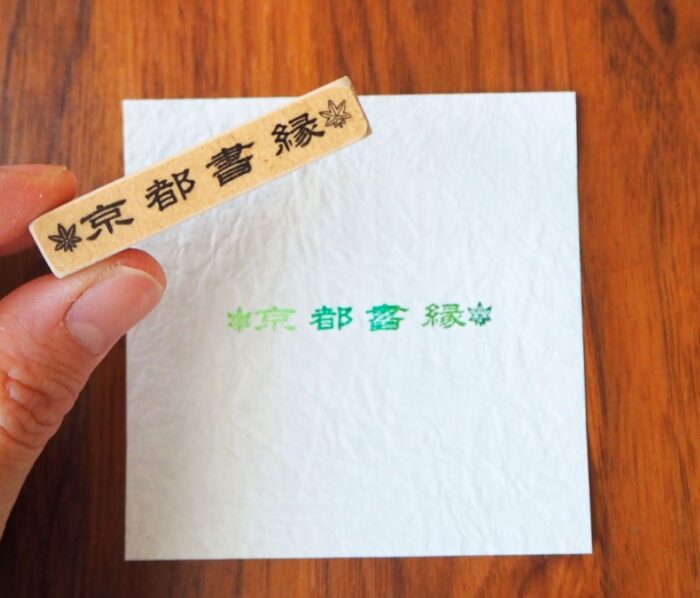 京都書縁
京都書縁